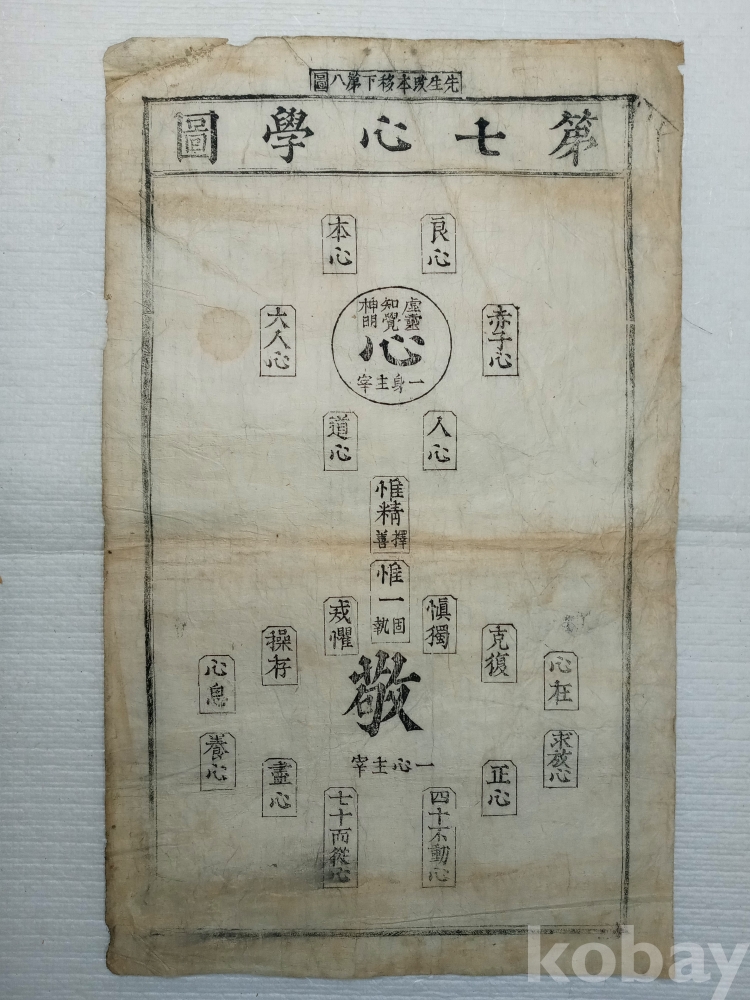 先生改本移下第八圖
第七心學圖
良心
本心
虛靈
知覺
神明
心
一身主宰
赤子心
大人心
人心
道心
惟精
擇善
惟一
固執
愼獨
戒懼
克復
操存
心在
心思
敬
一心主宰
求放心
養心
正心
盡心
四十不動心
七十而從心
kobay